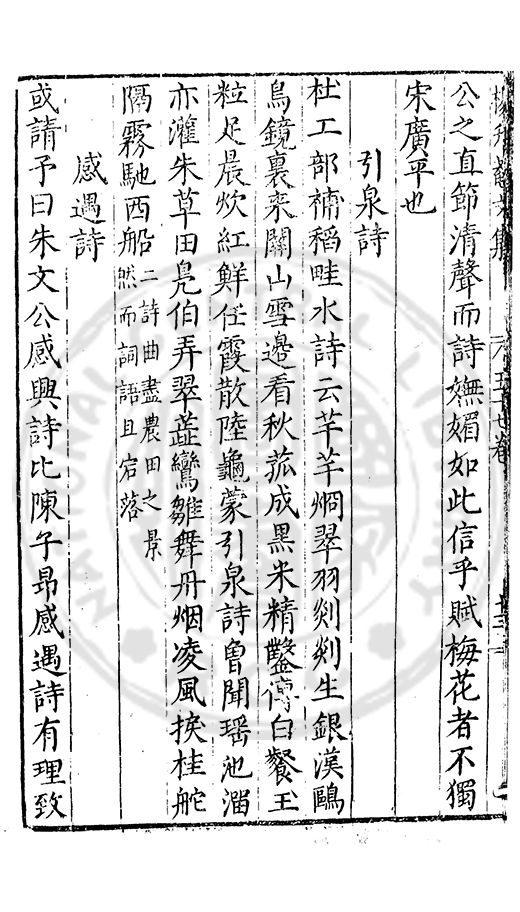 公之直節清聲而詩嫵媚如此信乎賦梅花者不獨
宋廣平也
引泉詩
杜工部補稻畦水詩云芊芊烱翠羽剡剡生銀漢鷗
鳥鏡裏來關山雪邊看秋菰成黑米精鑿傳白粲玉
粒足晨炊紅鮮任霞散陸龜蒙引泉詩曾聞瑶池溜
亦灌朱草田鳧伯弄翠蕋鸞雛舞丹烟凌風捩桂舵
隔霧馳西船二詩曲盡農田之景
然而詞語且宕落
感遇詩
或請予曰朱文公感興詩比陳子昻感遇詩有理致